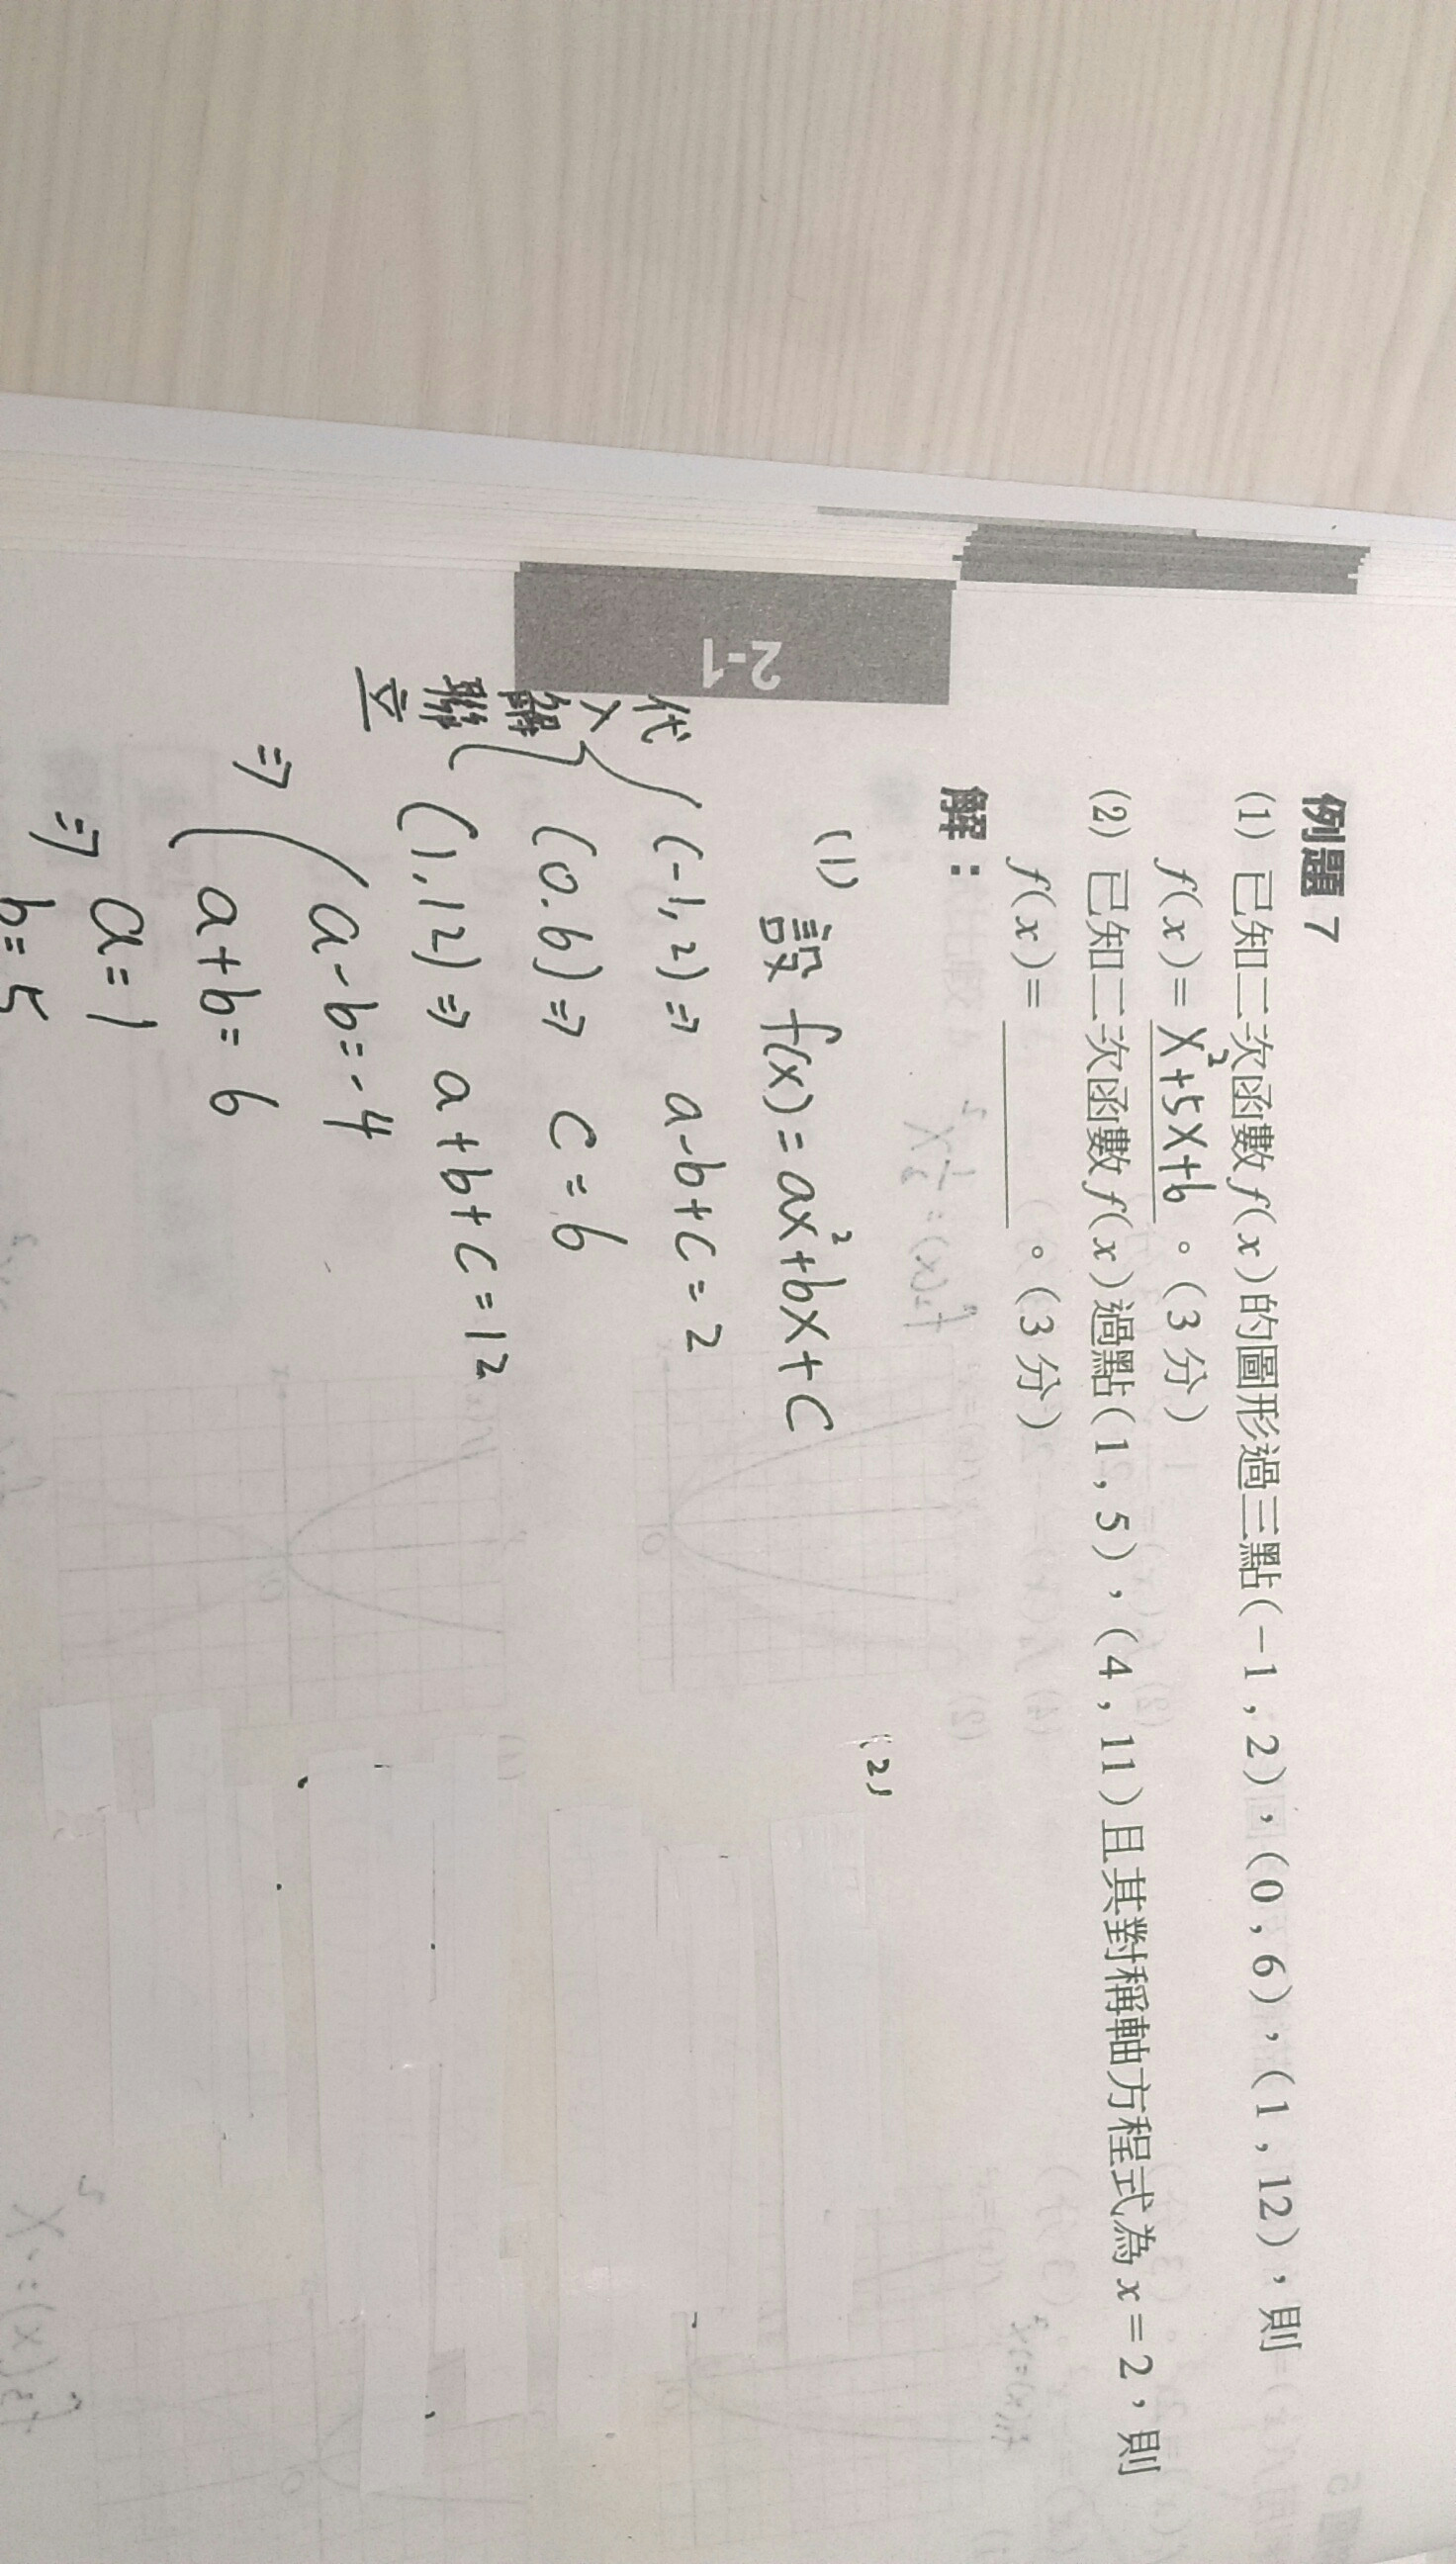 例題 7
(1) 已知二次函數 f(x) 的圖形過三點(-1,2),(0,6),(1,12),則
f(x)= x²+5x+6 。(3分)
(2) 已知二次函數 f(x) 過點(1,5),(4,11)且其對稱軸方程式為 x=2,則
f(x)= ______ 。(3分)
解:
(1)
設 f(x)=ax²+bx+c
代入 解聯立
(-1,2) ⇒ a-b+c=2
(0.6) ⇒ c=6
(1,12) ⇒ a+b+c=12
⇒ a-b=-4
a+b=6
⇒ a=1
b=5
(2)
2-1